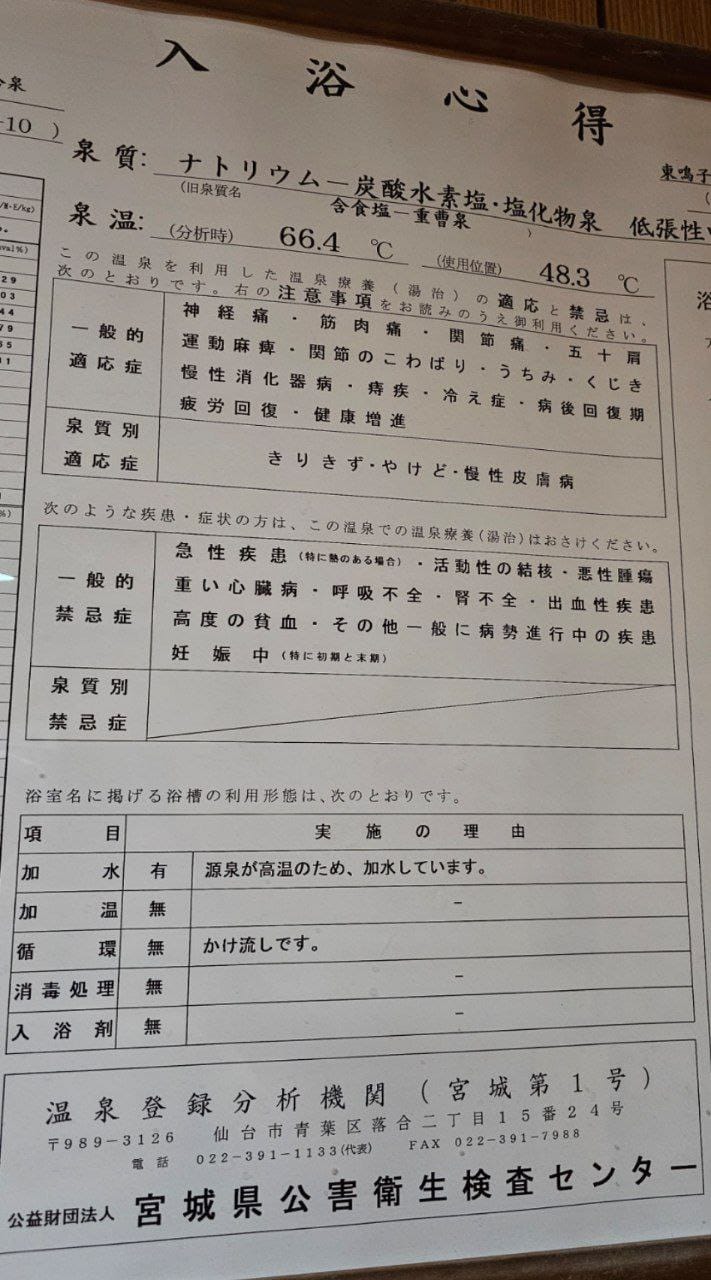 入浴心得
泉
10 )
東鳴子
泉質: ナトリウム－炭酸水素塩・塩化物泉 低張性
(旧泉質名 含食塩－重曹泉 )
泉温: (分析時) 66.4 ℃ (使用位置) 48.3 ℃
この温泉を利用した温泉療養(湯治)の適応と禁忌は、
次のとおりです。右の注意事項をお読みのうえ御利用ください。
一般的適応症
神経痛・筋肉痛・関節痛・五十肩
運動麻痺・関節のこわばり・うちみ・くじき
慢性消化器病・痔疾・冷え症・病後回復期
疲労回復・健康増進
泉質別適応症
きりきず・やけど・慢性皮膚病
次のような疾患・症状の方は、この温泉での温泉療養(湯治)はおさけください。
一般的禁忌症
急性疾患(特に熱のある場合)・活動性の結核・悪性腫瘍
重い心臓病・呼吸不全・腎不全・出血性疾患
高度の貧血・その他一般に病勢進行中の疾患
妊娠中(特に初期と末期)
泉質別禁忌症
浴室名に掲げる浴槽の利用形態は、次のとおりです。
項目 実施の理由
加水 有 源泉が高温のため、加水しています。
加温 無 －
循環 無 かけ流しです。
消毒処理 無 －
入浴剤 無 －
温泉登録分析機関(宮城第1号)
〒989－3126 仙台市青葉区落合二丁目15番24号
電話 022－391－1133(代表) FAX 022－391－7988
公益財団法人 宮城県公害衛生検査センター